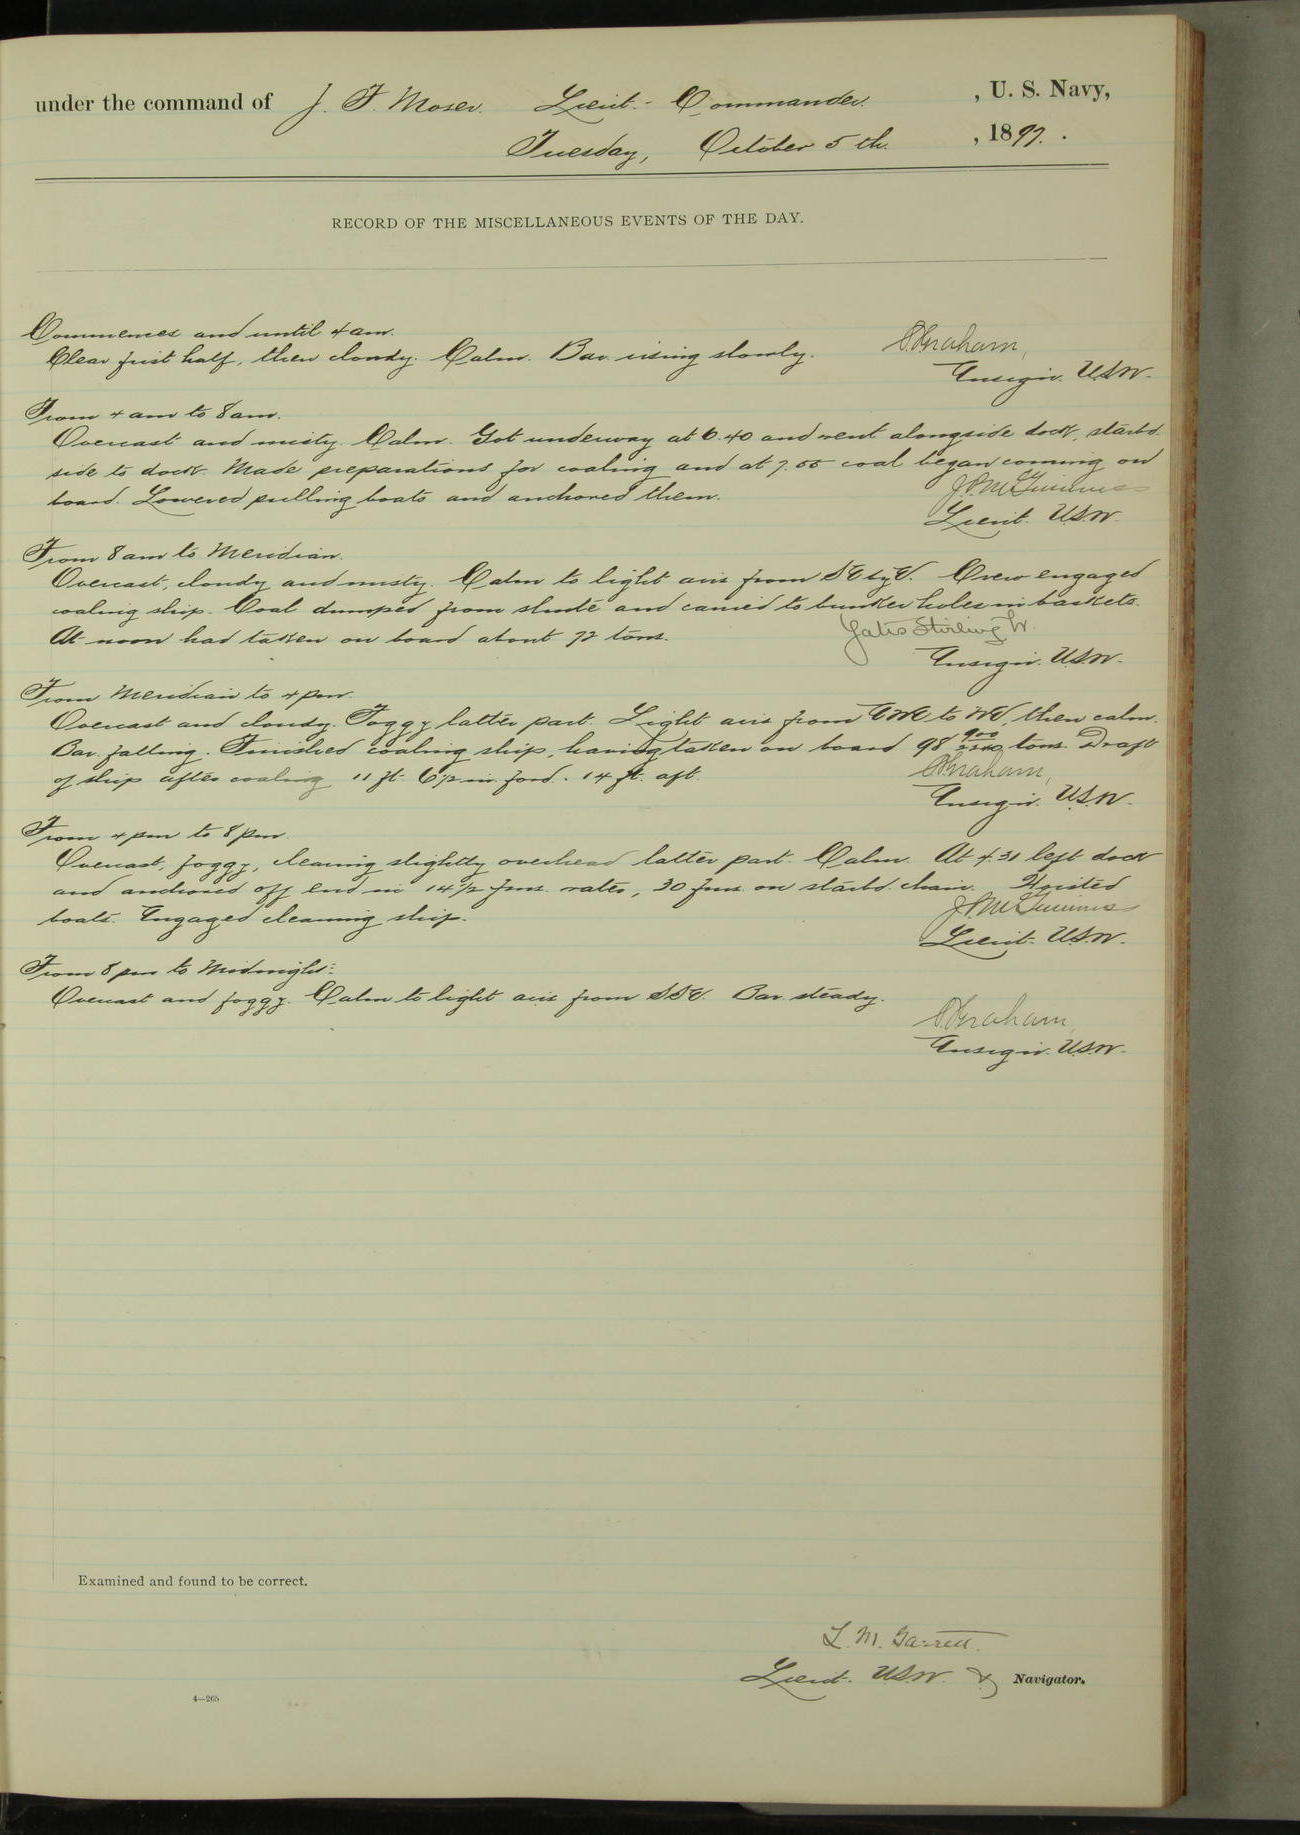 under the command of J. F. Moser. Lieut.- Commander. , U. S. Navy,
Tuesday, October 5th. , 1897.
RECORD OF THE MISCELLANEOUS EVENTS OF THE DAY.
Commences and until 4 am.
Clear first half, then cloudy. Calm. Bar. rising slowly.
Graham,
Ensign. U.S.N.
From 4 am to 8 am.
Overcast and misty. Calm. Got underway at 6.40 and went alongside dock, starb'd
side to dock. Made preparations for coaling and at 7.55 coal began coming on
board. Lowered pulling boats and anchored them.
Lieut. U.S.N.
From 8 am to Meridian.
Overcast, cloudy and misty. Calm to light airs from SE by E. Crew engaged
coaling ship. Coal dumped from shute and carried to bunker holes in baskets.
At noon had taken on board about 72 tons.
Yates Stirling Jr.
Ensign. U.S.N.
From Meridian to 4 pm.
Overcast and cloudy. Foggy latter part. Light airs from to NE, then calm.
Bar. falling. Finished coaling ship, having taken on board 98 900/2240 tons. Draft
of ship after coaling 11 ft. 6 1/2 in. for'd. 14 ft. aft.
Graham,
Ensign. U.S.N.
From 4 pm to 8 pm.
Overcast, foggy, clearing slightly overhead latter part. Calm. At 4.31 left dock
and anchored off end in 14 1/2 fms. water, 30 fms. on starb'd. chain. Hoisted
boats. Engaged cleaning ship.
Lieut. U.S.N.
From 8 pm to Midnight:
Overcast and foggy. Calm to light airs from SSE. Bar. steady.
Graham,
Ensign. U.S.N.
Examined and found to be correct.
L. M. Garrett.
Lieut. U.S.N. & Navigator.
4—265